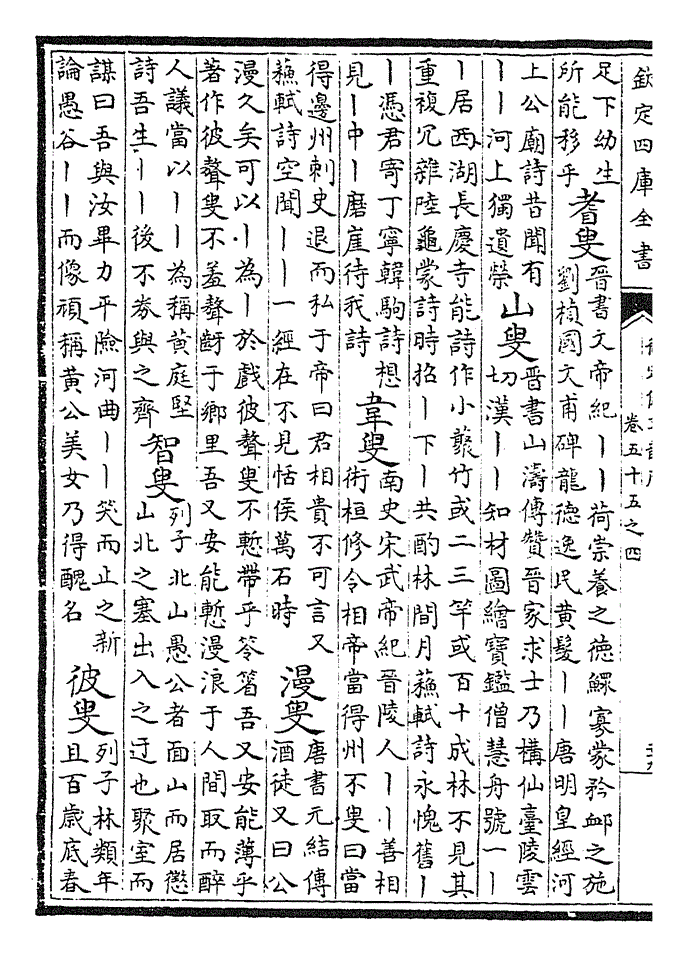 欽定四庫全書
卷五十五之四
足下幼生
所能移乎
耆叟
晉書文帝紀丨丨荷崇養之徳鰥寡蒙矜䘏之施
劉楨國文甫碑龍徳逸民黄髪丨丨唐明皇經河
上公廟詩昔聞有
丨丨河上獨遺榮
山叟
晉書山濤傳贊晉家求士乃構仙臺陵雲
切漢丨丨知材圖繪寳鑑僧慧舟號一丨
丨居西湖長慶寺能詩作小叢竹或二三竿或百十成林不見其
重複冗雜陸龜蒙詩時招丨下丨共酌林間月蘇軾詩永愧舊丨
丨憑君寄丁寧韓駒詩想
見丨中丨磨崖待我詩
韋叟
南史宋武帝紀晉陵人丨丨善相
術桓修令相帝當得州不叟曰當
得邊州刺史退而私于帝曰君相貴不可言又
蘇軾詩空聞丨丨一經在不見恬侯萬石時
漫叟
唐書元結傳
酒徒又曰公
漫久矣可以丨為丨於戲彼聱叟不慙帶乎笭箵吾又安能薄乎
著作彼聱叟不羞聱齖于鄉里吾又安能慙漫浪于人間取而醉
人議當以丨丨為稱黄庭堅
詩吾生丨丨後不券與之齊
智叟
列子北山愚公者面山而居懲
山北之塞出入之迂也聚室而
謀曰吾與汝畢力平險河曲丨丨笑而止之新
論愚谷丨丨而像頑稱黄公美女乃得醜名
彼叟
列子林類年
且百歳底春